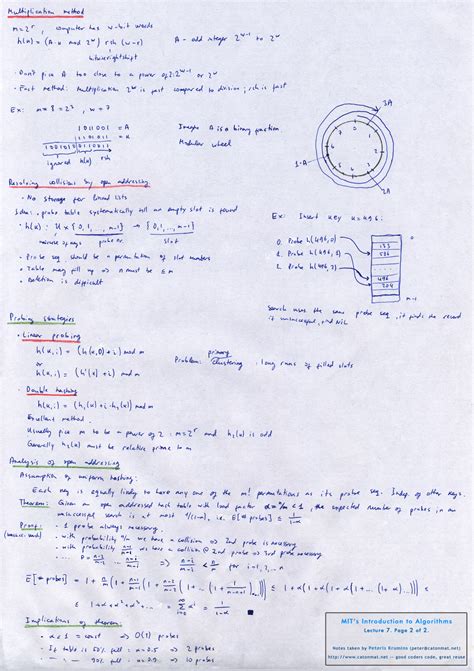 Multiplication method
m=2^r, computer has w-bit words
h(k) = (A·k mod 2^w) rsh (w-r)    A - odd integer 2^w-1 to 2^w
bitwise right shift
· Don't pick A too close to a power of 2: 2^w-1 or 2^w
· Fast method: Multiplication 2^w is fast compared to division; rsh is fast
Ex: m = 8 = 2^3, w = 7
1011001 = A
1101011 = k
ignored h(k) rsh
A is a binary fraction
Modular wheel
3·A
1·A
2A
Resolving collisions by open addressing
· No storage for linked lists
probe table systematically till an empty slot is found
· h(k): U x {0, 1, ..., m-1} → {0, 1, ..., m-1}
universe of keys    probe nr.    slot
· Probe seq should be a permutation of slot numbers
· Table may fill up => n must be ≤ m
· Deletion is difficult
Ex: Insert key k=496:
0. Probe h(496,0)
1. Probe h(496,1)
2. Probe h(496,2)
586
133
204
496
m-1
Search uses the same probe seq, if it finds the record
if unsuccessful, finds Nil
Probing strategies
· Linear probing
h(k,i) = (h(k,0)+i) mod m
or
h(k,i) = (h'(k)+i) mod m
Problem: primary clustering. long runs of filled slots
· Double hashing
h(k,i) = (h1(k)+i·h2(k)) mod m
Excellent method.
Usually pick m to be a power of 2: m=2^r and h2(k) is odd
Generally h2(k) must be relative prime to m
Analysis of open addressing
Assumption of uniform hashing:
Each key is equally likely to have any one of the m! permutations as its probe seq. Indep. of other keys.
Theorem: Given an open addressed hash table with load factor α = n/m < 1, the expected number of probes in an
unsuccessful search is at most 1/(1-α), i.e. E[# probes] ≤ 1/(1-α)
Proof: · 1 probe always necessary.
· with probability n/m we have a collision => 2nd probe is necessary
· with probability (n-1)/(m-1) we have a collision @ 2nd probe => 3rd probe necessary
(n-i)/(m-i) < n/m = α for i=1,2,...n
E[# probes] = 1 + n/m (1 + (n-1)/(m-1) (1 + (n-2)/(m-2) (1 + ... (1 + 1/(m-n+1)) ...))) ≤ 1+α(1+α(1+α(1+...(1+α)...))) ≤
≤ 1+α+α²+α³+... = Σ α^i = 1/(1-α)
Implications of theorem:
· α < 1 const => O(1) probes
· If table is 50% full => 2 probes
MIT's Introduction to Algorithms
Lecture 7. Page 2 of 2.
Notes taken by Peteris Krumins (peter@catonmat.net)
http://www.catonmat.net -- good coders code, great reuse